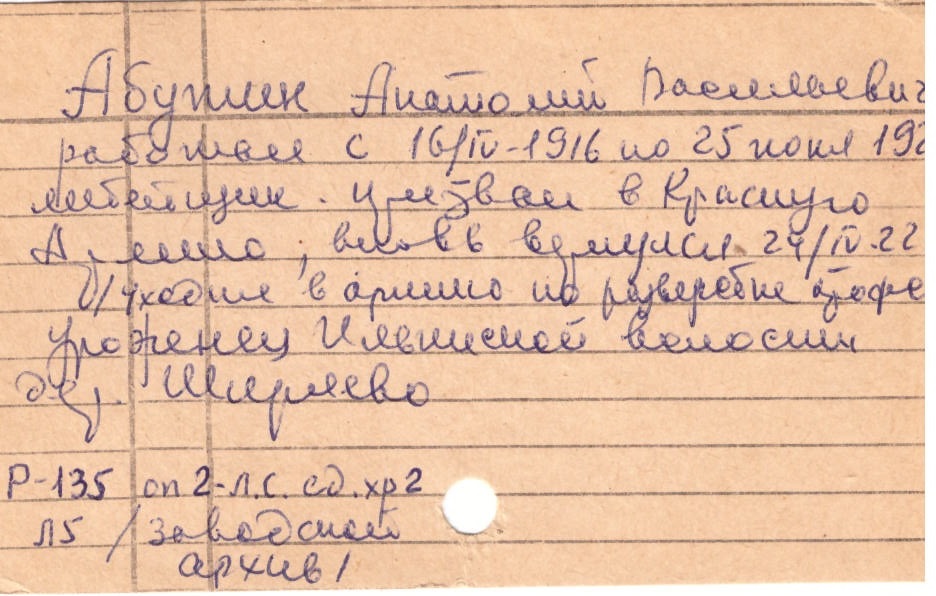 Абутин Анатолий Васильевич
работал с 16/IV-1916 по 25 июня 192
литейщик. призван в Красную
Армию, вновь вернулся 24/IV.22
/уходил в армию по разверстке профс
уроженец Ильинской волости
дер. Ширяево
Р-135 оп 2-л.с. ед.хр2
л5 /Заводской
архив/